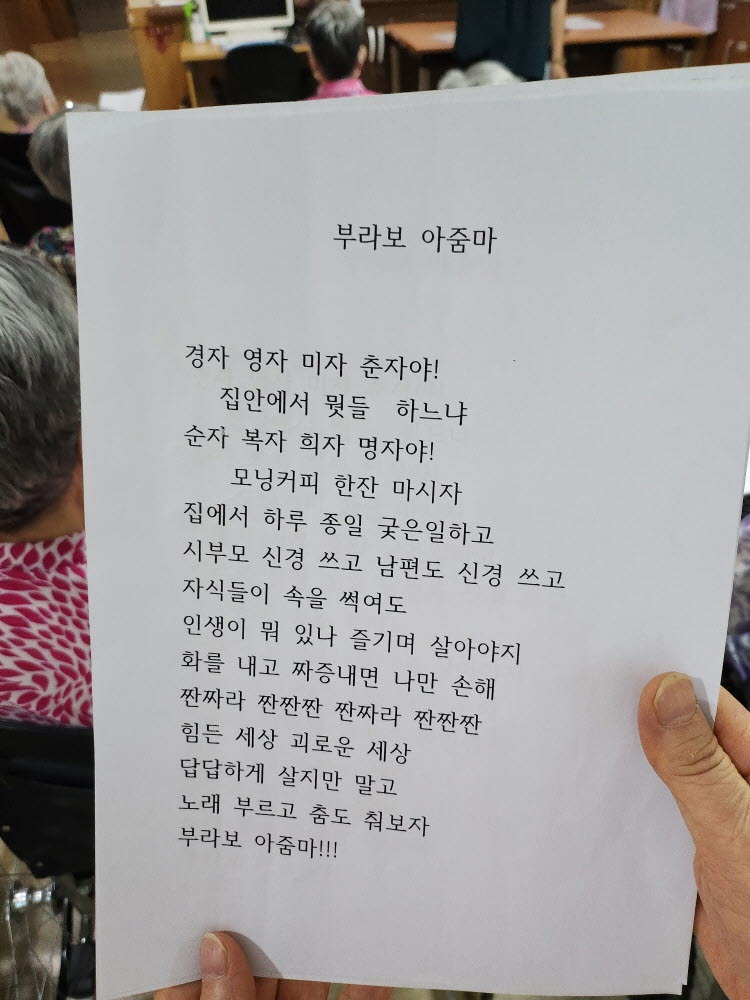 부라보 아줌마
경자 영자 미자 춘자야!
집안에서 뭣들 하느냐
순자 복자 희자 명자야!
모닝커피 한잔 마시자
집에서 하루 종일 궂은일하고
시부모 신경 쓰고 남편도 신경 쓰고
자식들이 속을 썩여도
인생이 뭐 있나 즐기며 살아야지
화를 내고 짜증내면 나만 손해
짠짜라 짠짠짠 짠짜라 짠짠짠
힘든 세상 괴로운 세상
답답하게 살지만 말고
노래 부르고 춤도 춰보자
부라보 아줌마!!!